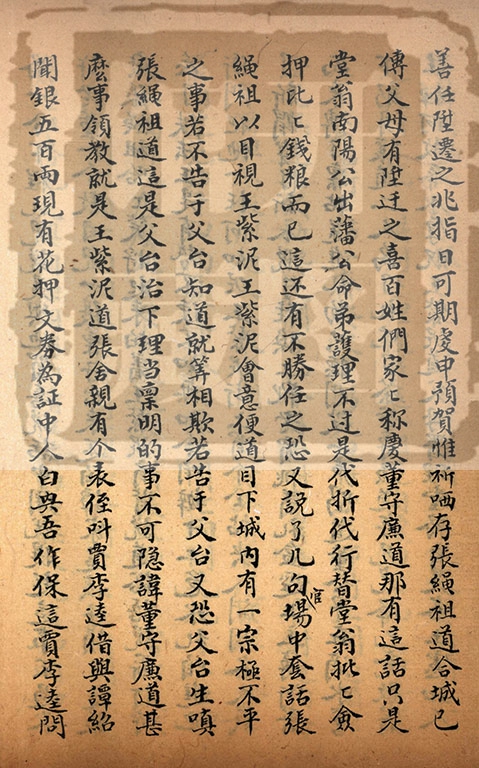 善任陞遷之兆指日可期虔申預賀惟祈哂存張繩祖道合城已
傳父母有陞迁之喜百姓們家〻称慶董守廉道那有這話只是
堂翁南陽公出藩公命弟護理不过是代折代行替堂翁批〻僉
押比〻錢粮而已這还有不勝任之恐又説了几句官場中套話張
繩祖以目視王紫泥王紫泥會意便道目下城内有一宗極不平
之事若不告于父台知道就筭相欺若告于父台又恐父台生嗔
張繩祖道這是父台治下理当禀明的事不可隐諱董守廉道甚
麽事領教就是王紫泥道張舍親有个表侄呌賈李逵借與譚紹
聞銀五百両現有花押文劵為証中人白典吾作保這賈李逵問